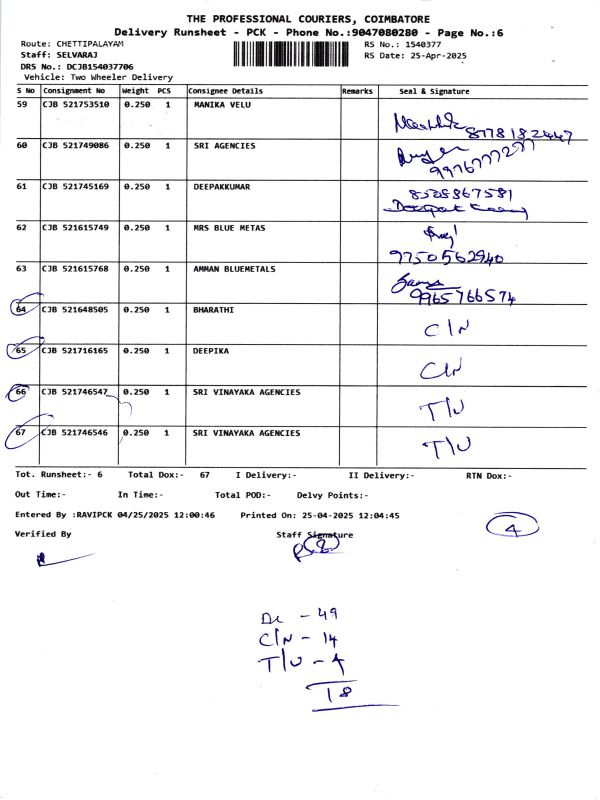 THE PROFESSIONAL COURIERS, COIMBATORE
Delivery Runsheet - PCK - Phone No.:9047080280 - Page No.:6
Route: CHETTIPALAYAM RS No.: 1540377
Staff: SELVARAJ RS Date: 25-Apr-2025
DRS No.: DCJB154037706
Vehicle: Two Wheeler Delivery
S No Consignment No Weight PCS Consignee Details Remarks Seal & Signature
59 CJB 521753510 0.250 1 MANIKA VELU
8778182447
60 CJB 521749086 0.250 1 SRI AGENCIES
61 CJB 521745169 0.250 1 DEEPAKKUMAR
8508867581
62 CJB 521615749 0.250 1 MRS BLUE METAS
9750562940
63 CJB 521615768 0.250 1 AMMAN BLUEMETALS
9965766574
64 CJB 521648505 0.250 1 BHARATHI
C/N
65 CJB 521716165 0.250 1 DEEPIKA
C/N
66 CJB 521746547 0.250 1 SRI VINAYAKA AGENCIES
T/U
67 CJB 521746546 0.250 1 SRI VINAYAKA AGENCIES
T/U
Tot. Runsheet:- 6 Total Dox:- 67 I Delivery:- II Delivery:- RTN Dox:-
Out Time:- In Time:- Total POD:- Delvy Points:-
Entered By :RAVIPCK 04/25/2025 12:00:46 Printed On: 25-04-2025 12:04:45
4
Verified By Staff Signature
DL - 49
C/N - 14
T/U - 4
18